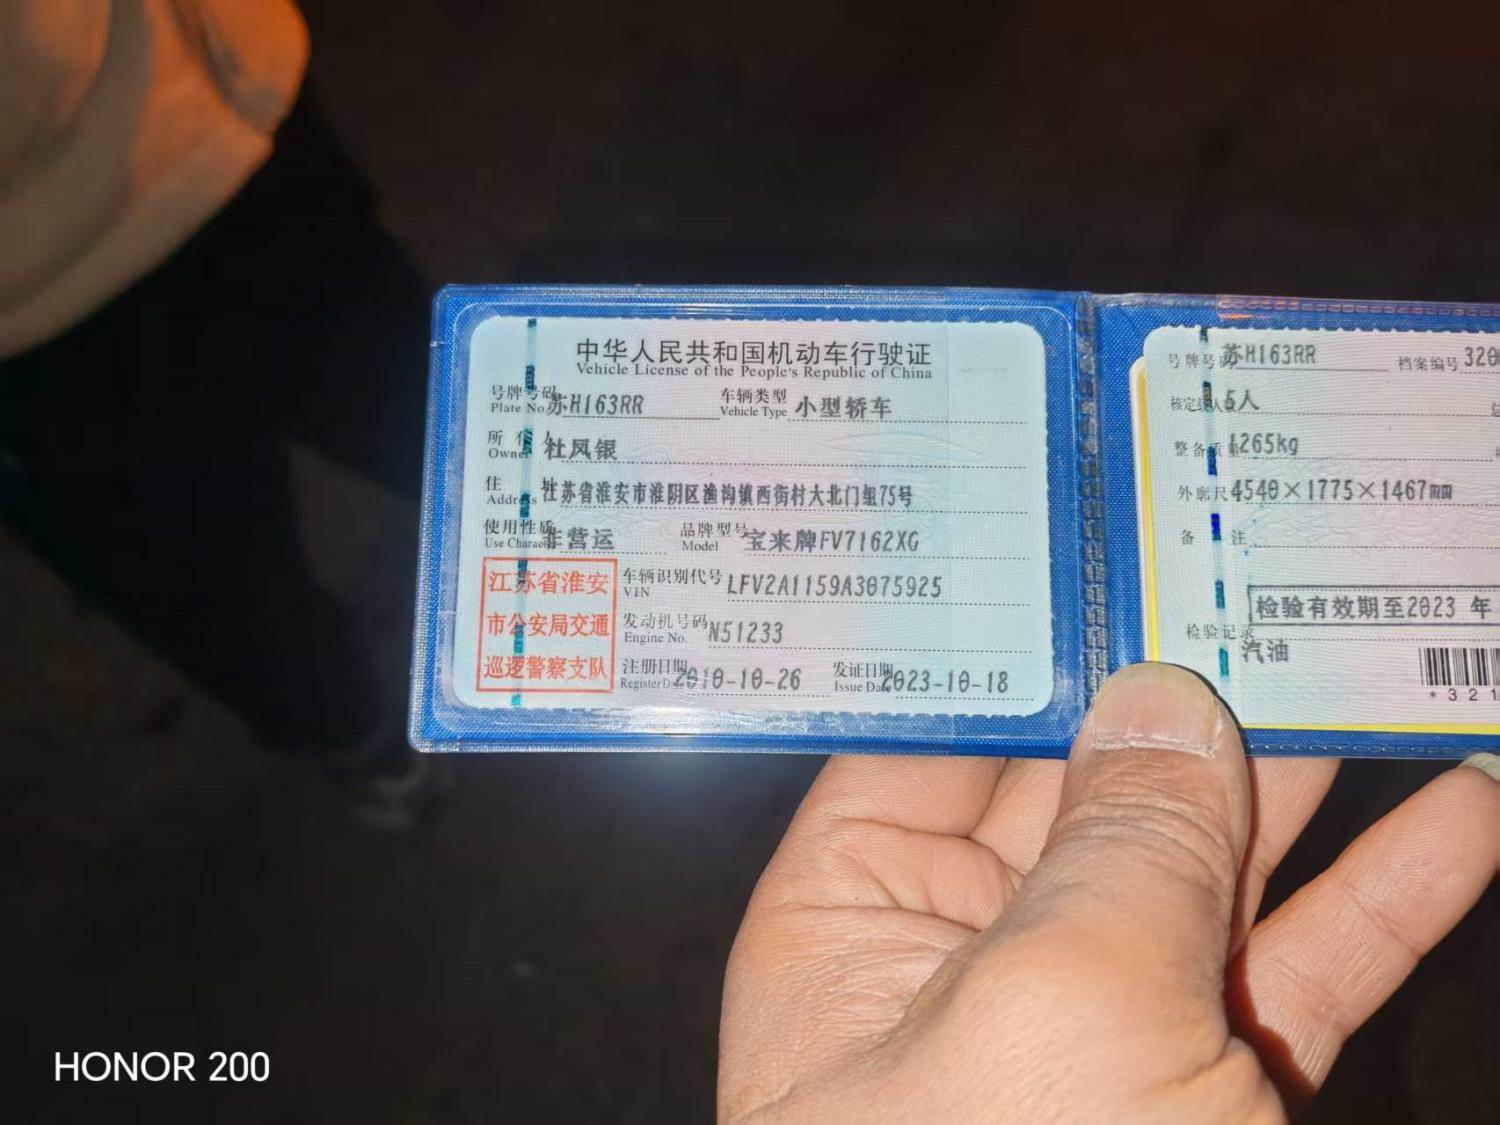 中华人民共和国机动车行驶证
Vehicle License of the People's Republic of China
号牌号码 苏H163RR 车辆类型 小型轿车
Plate No. Vehicle Type
所有人 杜凤银
Owner
住址 江苏省淮安市淮阴区渔沟镇西街村大北门组75号
Address
使用性质 非营运 品牌型号 宝来牌FV7162XG
Use Character Model
江苏省淮安
市公安局交通
巡逻警察支队
车辆识别代号 LFV2A1159A3075925
VIN
发动机号码 N51233
Engine No.
注册日期 2010-10-26 发证日期 2023-10-18
Register Date Issue Date
号牌号码 苏H163RR 档案编号 320
核定载人数 5人
整备质量 1265kg
外廓尺 4540×1775×1467mm
备注
检验有效期至2023 年
检验记录
汽油
*321
HONOR 200